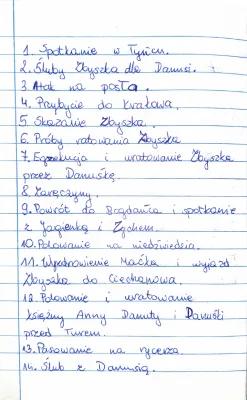 1. Spotkanie w Tyńcu.
2. Śluby Zbyszka dla Danusi.
3. Atak na posła.
4. Przybycie do Krakowa.
5. Skazanie Zbyszka.
6. Próby ratowania Zbyszka
7. Egzekucja i uratowanie Zbyszka
przez Danuśkę.
8. Zaręczyny.
9. Powrót do Bogdańca i spotkanie
z Jagienką i Zychem.
10. Polowanie na niedźwiedzia.
11. Wyzdrowienie Maćka i wyjazd
Zbyszka do Ciechanowa.
12. Polowanie i uratowanie
księżny Anny Danuty i Danuśki
przed Turem.
13. Pasowanie na rycerza.
14. Ślub z Danusią.